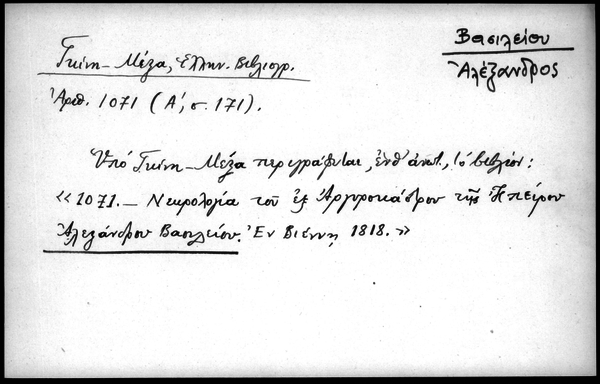 Βασιλείου
Ἀλέξανδρος
Γκίνη - Μέξα, Ἑλλην. Βιβλιογρ.
Ἀριθ. 1071 (Α΄, σ. 171).
Ὑπό Γκίνη - Μέξα περιγράφεται, ἔνθ' ἀνωτ., τό βιβλίον:
«1071. — Νεκρολογία τοῦ ἐξ Ἀργυροκάστρου τῆς Ἠπείρου
Ἀλεξάνδρου Βασιλείου. Ἐν Βιέννῃ 1818.»